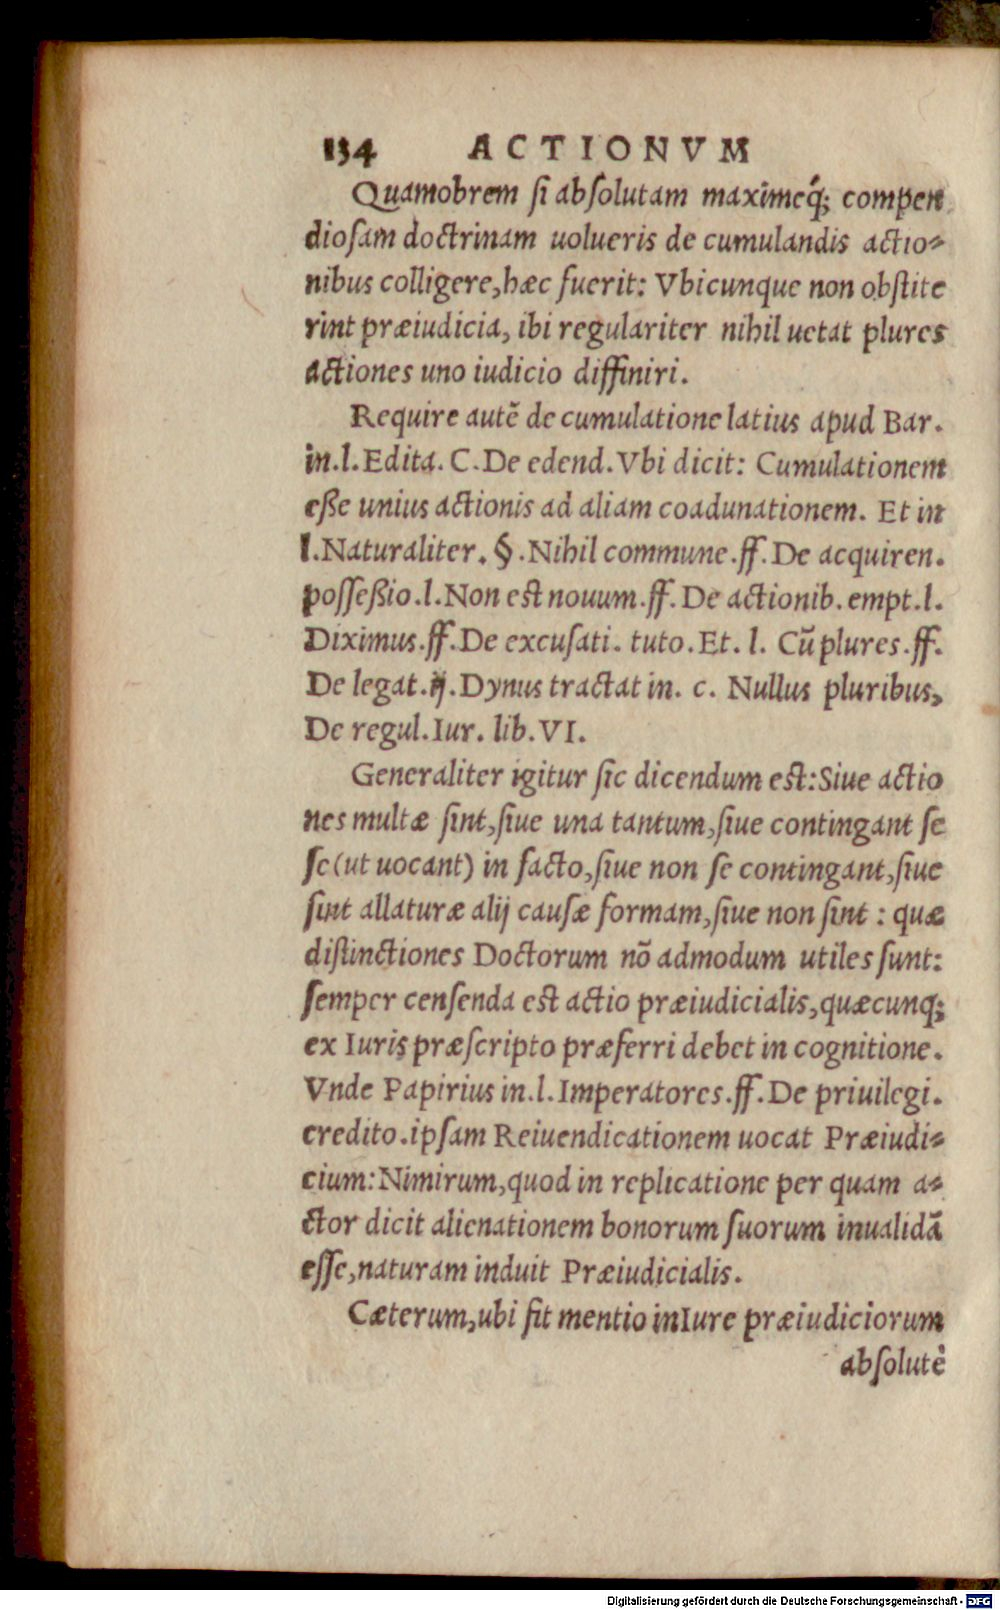 134 ACTIONVM
Quamobrem ſi abſolutam maximeq́; compen
dioſam doctrinam uolueris de cumulandis actio-
nibus colligere, hæc fuerit: Vbicunque non obſtite
rint præiudicia, ibi regulariter nihil uetat plures
actiones uno iudicio diffiniri.
Require autẽ de cumulatione latius apud Bar.
in.l.Edita. C. De edend. Vbi dicit: Cumulationem
eße unius actionis ad aliam coadunationem. Et in
l.Naturaliter. §. Nihil commune.ff. De acquiren.
poſſeßio.l.Non est nouum.ff. De actionib. empt.l.
Diximus.ff. De excuſati. tuto. Et. l. Cũ plures.ff.
De legat.ij. Dynus tractat in. c. Nullus pluribus,
De regul. Iur. lib. VI.
Generaliter igitur ſic dicendum est: Siue actio
nes multæ ſint, ſiue una tantum, ſiue contingant ſe
ſe (ut uocant) in facto, ſiue non ſe contingant, ſiue
ſint allaturæ alij cauſæ formam, ſiue non ſint : quæ
diſtinctiones Doctorum nõ admodum utiles ſunt:
ſemper cenſenda est actio præiudicialis, quæcunq;
ex Iuris præſcripto præferri debet in cognitione.
Vnde Papirius in.l.Imperatores.ff. De priuilegi.
credito. ipſam Reiuendicationem uocat Præiudi-
cium: Nimirum, quod in replicatione per quam a-
ctor dicit alienationem bonorum ſuorum inualidã
eſſe, naturam induit Præiudicialis.
Cæterum, ubi fit mentio in Iure præiudiciorum
abſolutè
Digitalisierung gefördert durch die Deutsche Forschungsgemeinschaft - DFG